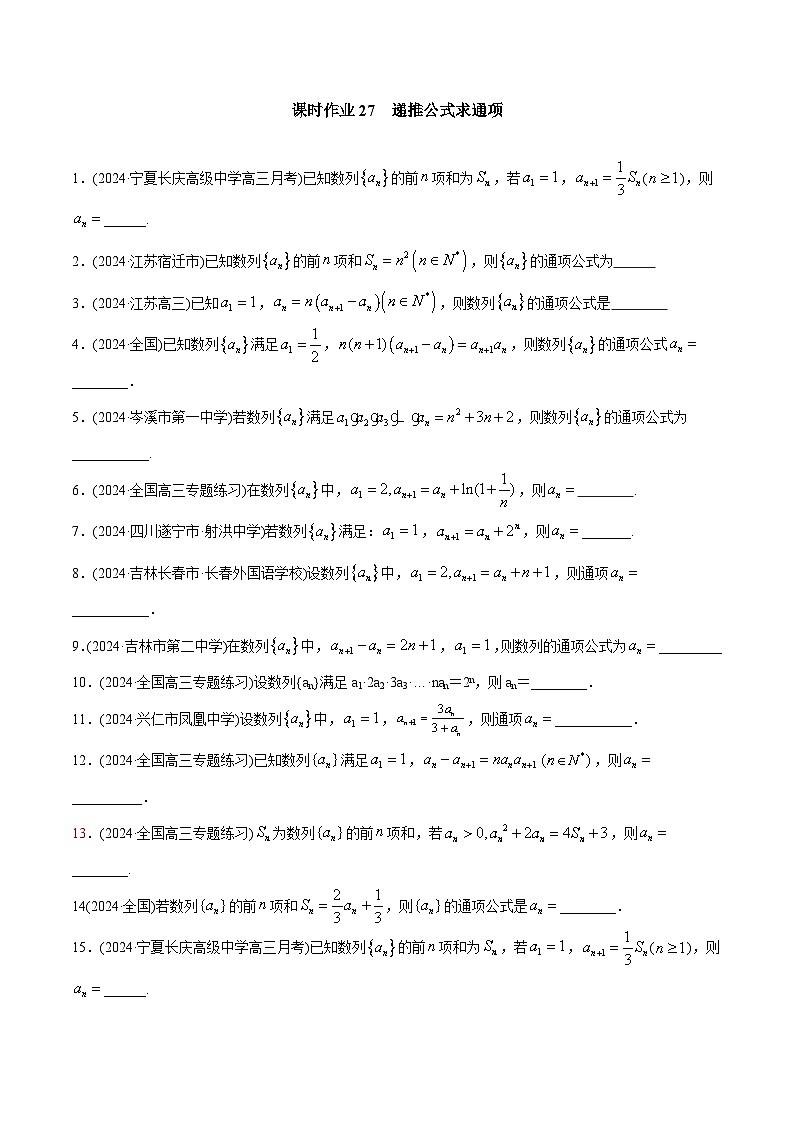 课时作业27  递推公式求通项
1．(2024·宁夏长庆高级中学高三月考)已知数列{aₙ}的前n项和为Sₙ，若a₁=1，aₙ₊₁=\frac{1}{3}Sₙ(n≥1)，则
aₙ=______.
2．(2024·江苏宿迁市)已知数列{aₙ}的前n项和Sₙ=n²(n∈N*)，则{aₙ}的通项公式为______
3．(2024·江苏高三)已知a₁=1，aₙ=n(aₙ₊₁-aₙ)(n∈N*)，则数列{aₙ}的通项公式是________
4．(2024·全国)已知数列{aₙ}满足a₁=\frac{1}{2}，n(n+1)(aₙ₊₁-aₙ)=aₙ₊₁aₙ，则数列{aₙ}的通项公式aₙ=
________．
5．(2024·岑溪市第一中学)若数列{aₙ}满足a₁ga₂ga₃gL gaₙ=n²+3n+2，则数列{aₙ}的通项公式为
___________.
6．(2024·全国高三专题练习)在数列{aₙ}中，a₁=2,aₙ₊₁=aₙ+ln(1+\frac{1}{n})，则aₙ=________.
7．(2024·四川遂宁市·射洪中学)若数列{aₙ}满足：a₁=1，aₙ₊₁=aₙ+2ⁿ，则aₙ=_______.
8．(2024·吉林长春市·长春外国语学校)设数列{aₙ}中，a₁=2,aₙ₊₁=aₙ+n+1，则通项aₙ=
___________．
9.(2024·吉林市第二中学)在数列{aₙ}中，aₙ₊₁-aₙ=2n+1，a₁=1,则数列的通项公式为aₙ=_________
10．(2024·全国高三专题练习)设数列{aₙ}满足a₁·2a₂·3a₃·…·naₙ＝2ⁿ，则aₙ＝________．
11．(2024·兴仁市凤凰中学)设数列{aₙ}中，a₁=1，aₙ₊₁=\frac{3aₙ}{3+aₙ}，则通项aₙ=___________．
12．(2024·全国高三专题练习)已知数列{aₙ}满足a₁=1，aₙ-aₙ₊₁=naₙaₙ₊₁(n∈N*)，则aₙ=
__________．
13．(2024·全国高三专题练习)Sₙ为数列{aₙ}的前n项和，若aₙ>0,aₙ²+2aₙ=4Sₙ+3，则aₙ=
________.
14(2024·全国)若数列{aₙ}的前n项和Sₙ=\frac{2}{3}aₙ+\frac{1}{3}，则{aₙ}的通项公式是aₙ=________．
15．(2024·宁夏长庆高级中学高三月考)已知数列{aₙ}的前n项和为Sₙ，若a₁=1，aₙ₊₁=\frac{1}{3}Sₙ(n≥1)，则
aₙ=______.